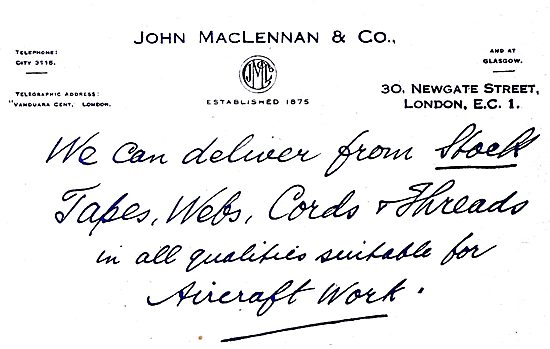 JOHN MACLENNAN & CO.,
TELEPHONE:
CITY 3115.
AND AT
GLASGOW.
TELEGRAPHIC ADDRESS:
"VANDUARA CENT, LONDON.
ESTABLISHED 1875
30, NEWGATE STREET,
LONDON, E.C. 1.
We can deliver from Stock
Tapes, Webs, Cords & Threads
in all qualities suitable for
Aircraft Work.